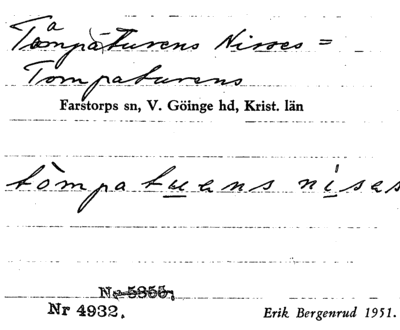 Tåmpåturens Nisses =
Tompaturens
Farstorps sn, V. Göinge hd, Krist. län
tòmpatuens nisas
Nr 5355.
Nr 4932.
Erik Bergenrud 1951.